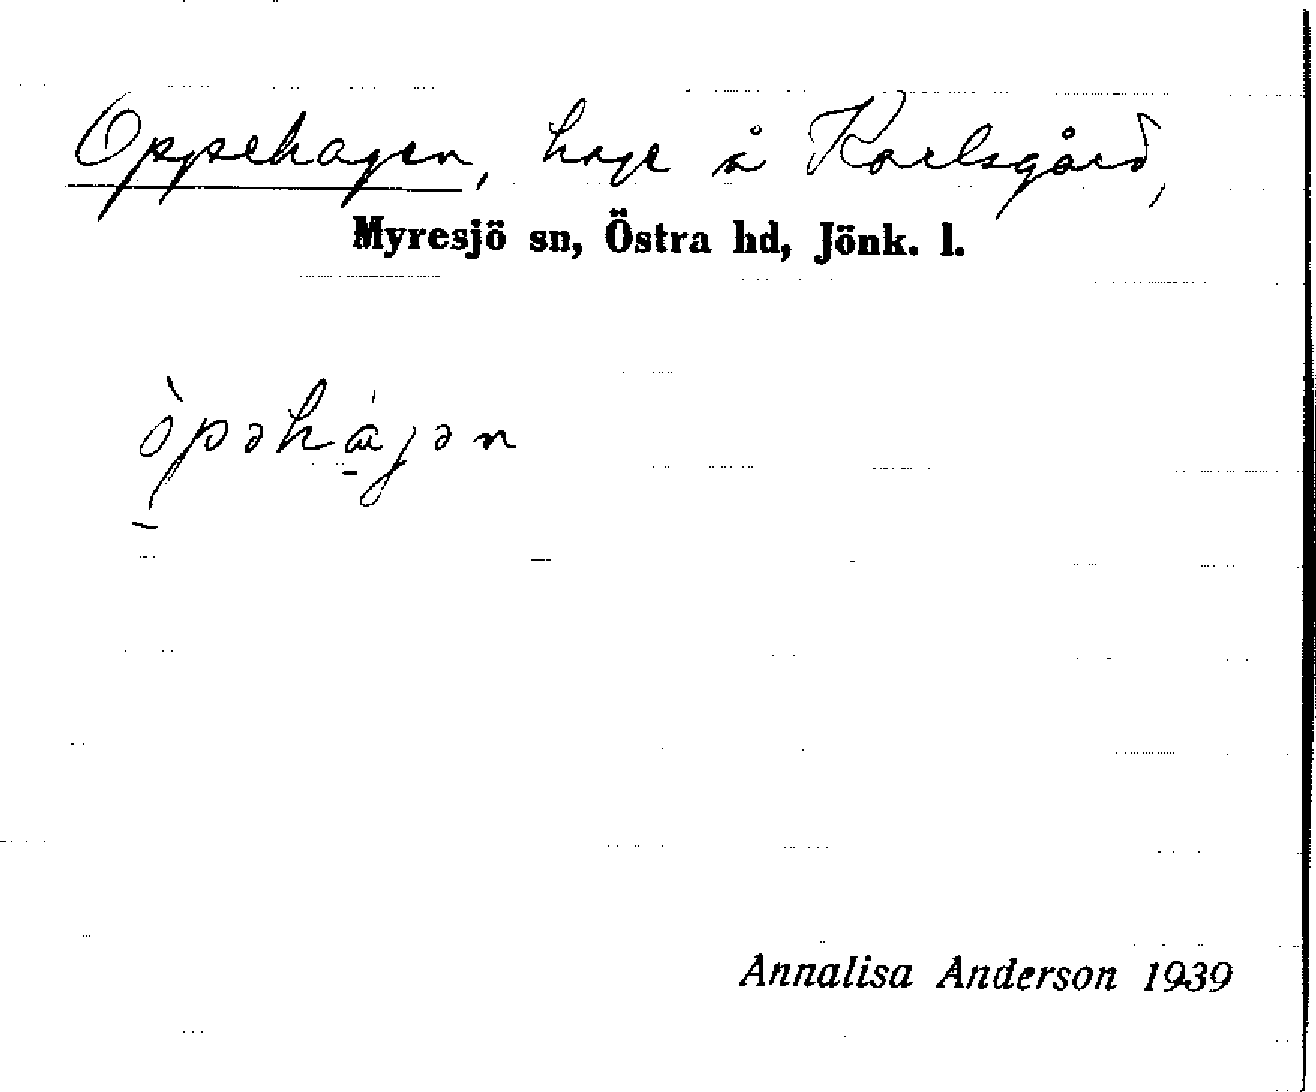 Oppehagen, hage å Karlsgård,
Myresjö sn, Östra hd, Jönk. l.
òpəhájən
Annalisa Anderson 1939